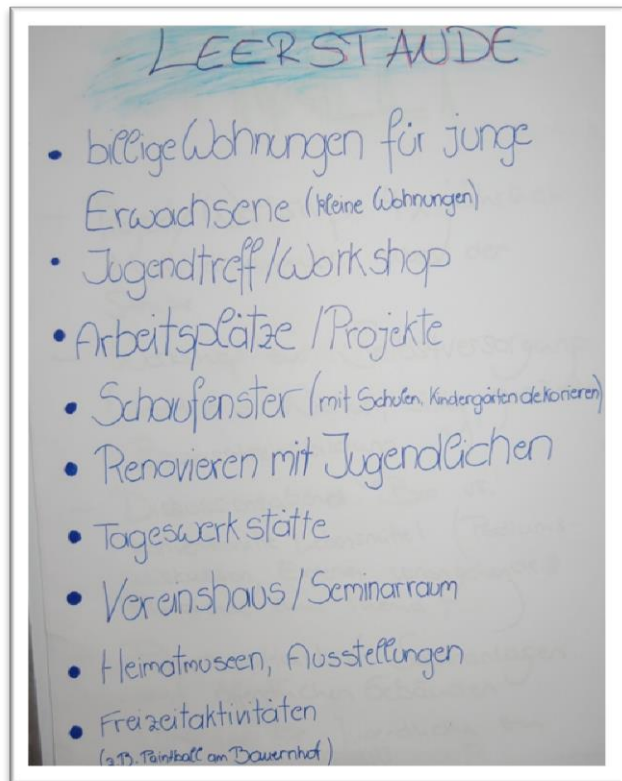 LEERSTÄNDE
• billige Wohnungen für junge
Erwachsene (kleine Wohnungen)
• Jugendtreff/Workshop
• Arbeitsplätze/Projekte
• Schaufenster (mit Schulen, Kindergärten dekorieren)
• Renovieren mit Jugendlichen
• Tageswerkstätte
• Vereinshaus/Seminarraum
• Heimatmuseen, Ausstellungen
• Freizeitaktivitäten
(z.B. Paintball am Bauernhof)